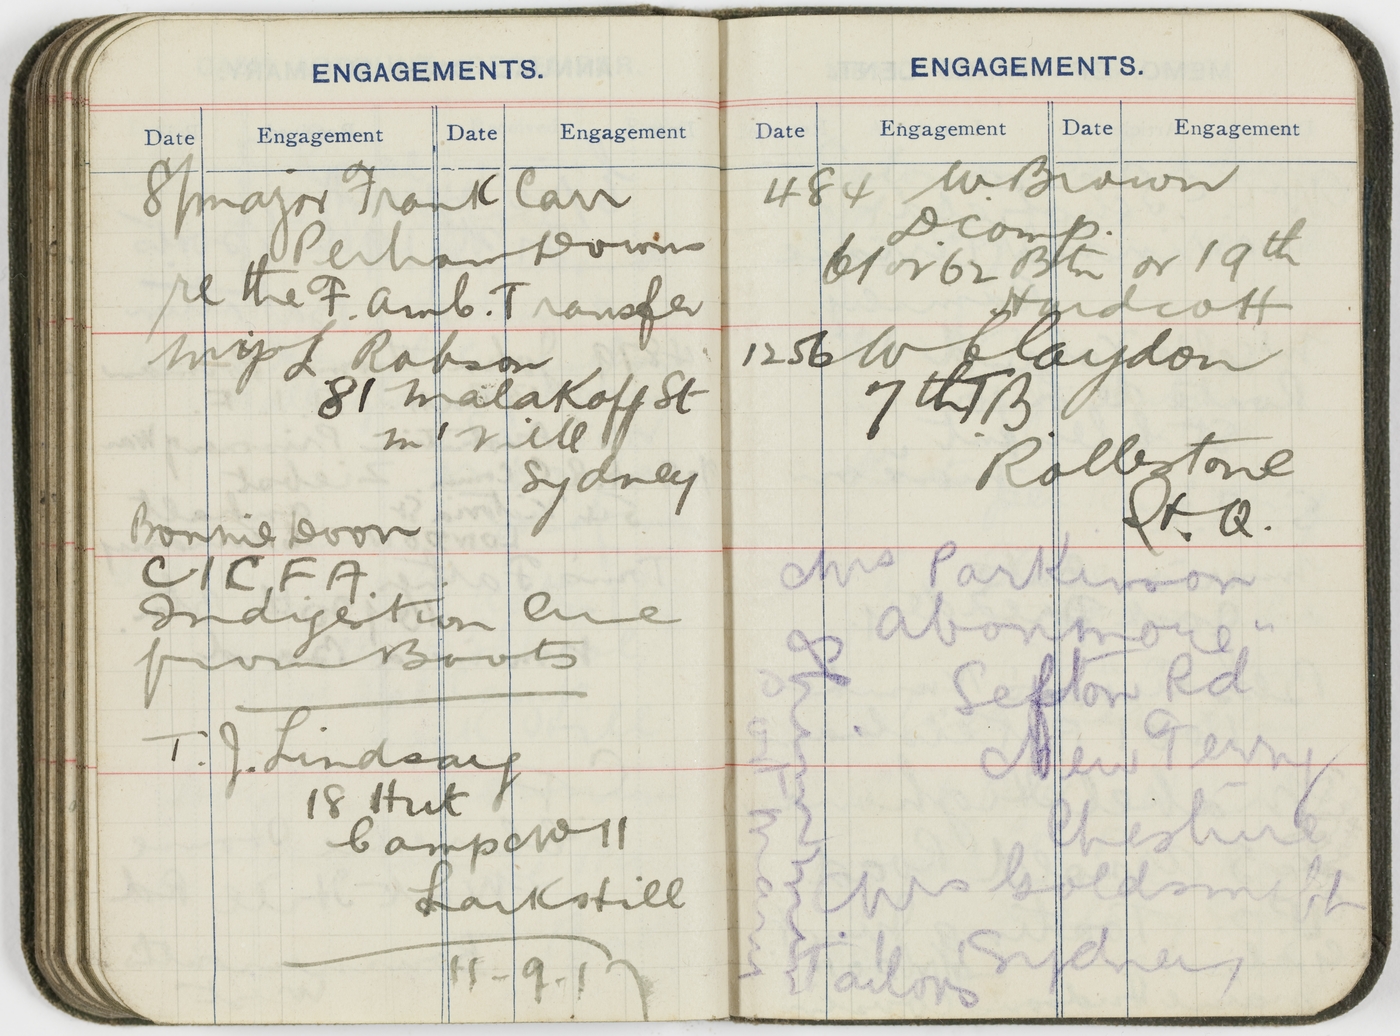 ENGAGEMENTS.
Date Engagement Date Engagement
S/major Frank Carr
Perham Downs
re the F. Amb. Transfer
L Robson
81 Malakoff St
M'ville
Sydney
Bonnie Doon
C/CFA.
Indigestion Cure
from Boots
T. J. Lindsay
18 Hut
Camp No 11
Larkshill
11-9-17
ENGAGEMENTS.
Date Engagement Date Engagement
484 W. Brown
D Comp.
61 or 62 Btn or 19th
Hurdcott
1256 W Claydon
7th TB
Rollestone
H. Q.
Mrs Parkinson
Sefton Rd
New Ferry
Cheshire
Mrs Goldsmith
Sydney
Tailors